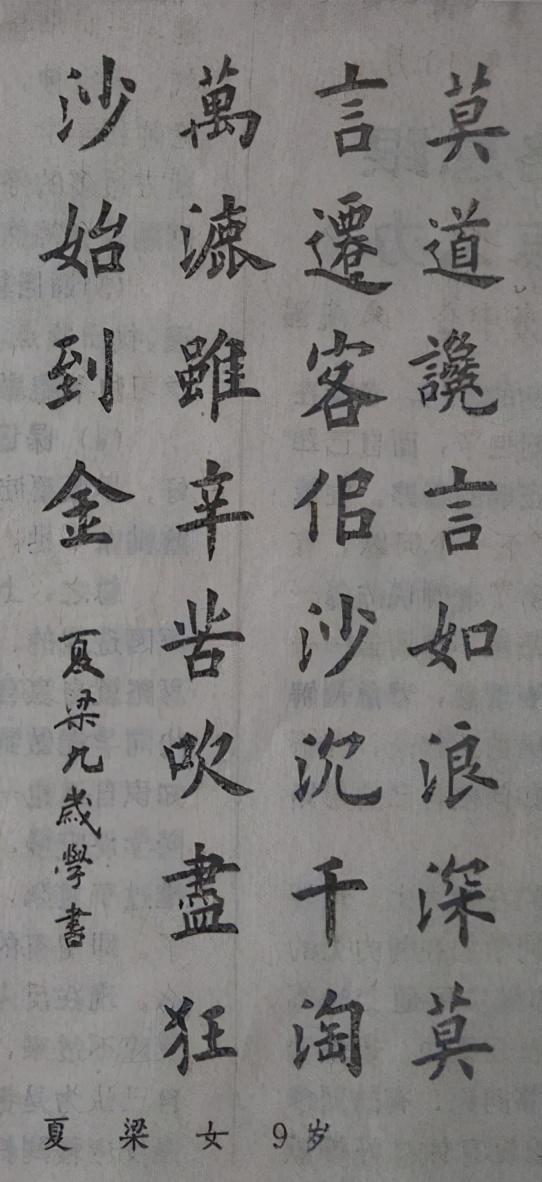 莫道讒言如浪深莫
言遷客佀沙沉千淘
萬漉雖辛苦吹盡狂
沙始到金
夏梁九歲學書
夏梁女9岁